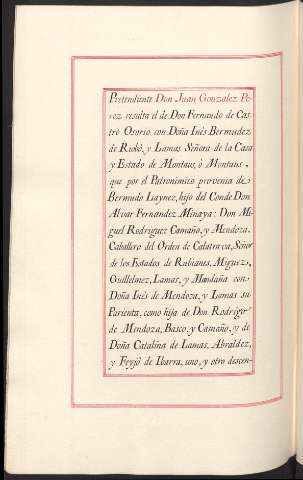 Pretendiente Don Juan Gonzalez Pe-
rez resulta el de Don Fernando de Cas-
tro Osorio con Doña Inès Bermudez
de Riobò, y Lamas Señora de la Casa
y Estado de Montaos, ò Montaus,
que por el Patronimico provenia de
Bermudo Laynez, hijo del Conde Don
Alvar Fernandez Minaya: Don Mi-
guel Rodriguez Camaño, y Mendoza,
Caballero del Orden de Calatrava, Señor
de los Estados de Rubianes, Miguez,
Guillelmez, Lamas, y Mandaña con
Doña Inès de Mendoza, y Lamas su
Parienta, como hija de Don Rodrigo
de Mendoza, Basco y Camaño, y de
Doña Catalina de Lamas, Abraldez,
y Feyjò de Ibarra, uno, y otro descen-